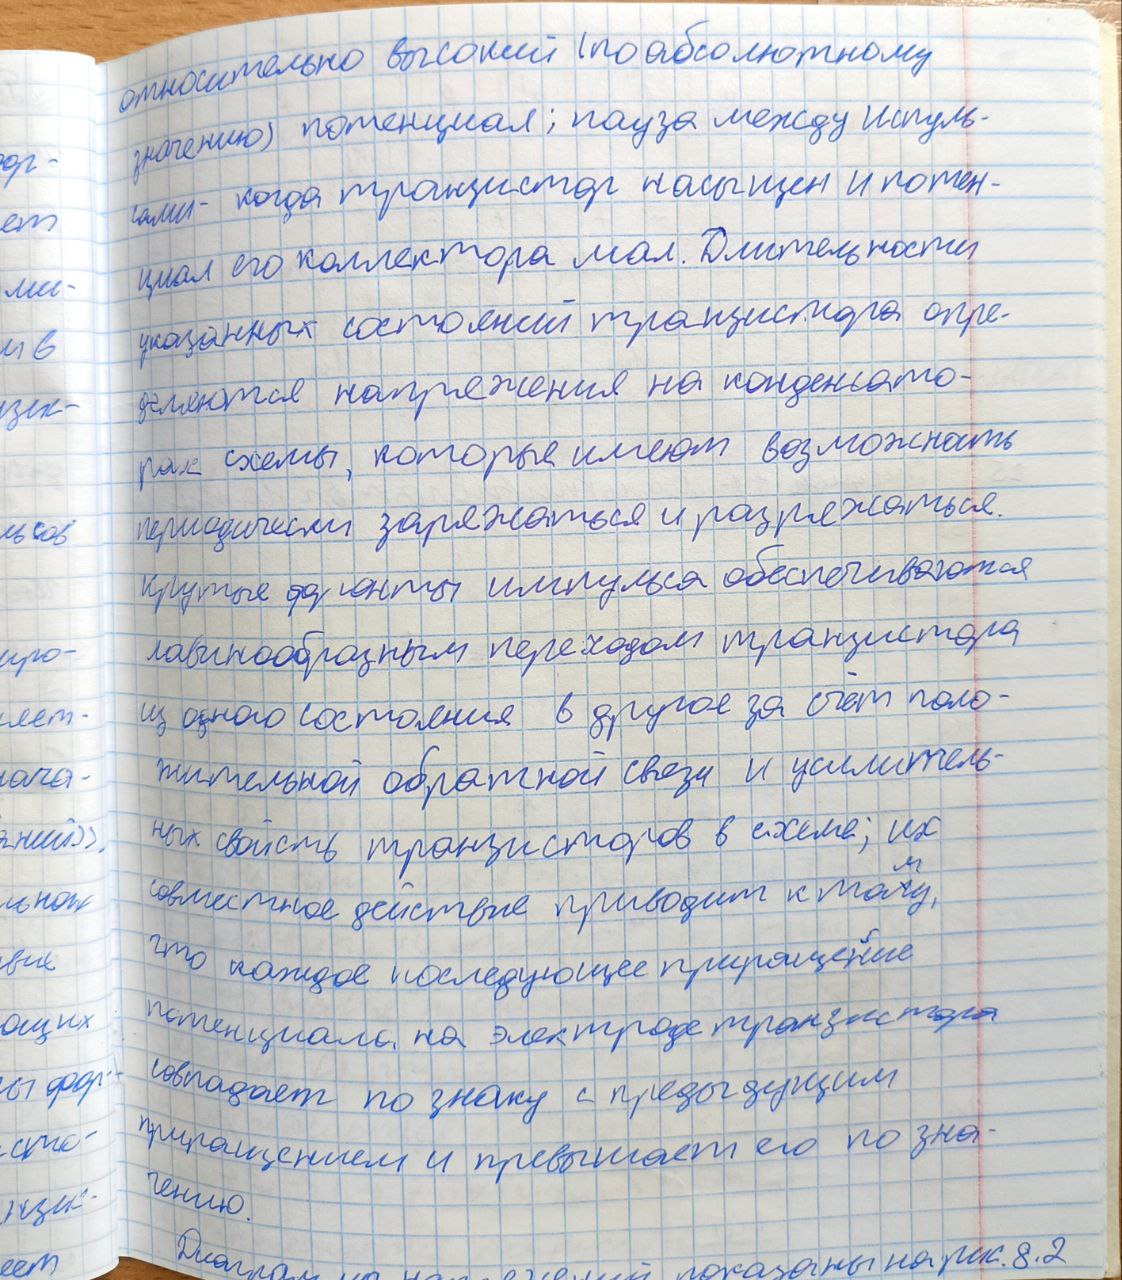 относительно высокий (по абсолютному
значению) потенциал; пауза между испуль-
сами - когда транзистор насыщен и потен-
циал его коллектора мал. Длительности
указанных состояний транзистора опре-
деляются напряжения на конденсато-
рах схемы, которые имеют возможность
периодически заряжаться и разряжаться.
Крутые фронты импульса обеспечиваются
лавинообразным переходом транзистора
из одного состояния в другое за счёт поло-
жительной обратной связи и усилитель-
ных свойств транзисторов в схеме; их
совместное действие приводит к тому,
что каждое последующее приращение
потенциала на электроде транзистора
совпадает по знаку с предыдущим
приращением и превышает его по зна-
чению.
Диаграммы напряжений показаны на рис. 8.2
ет
ми-
м в
льсов
иро-
ляет-
нача-
льном
вие
ющих
сто-
еет